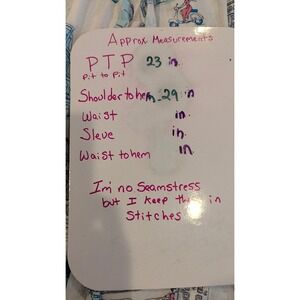 Approx Measurements
PTP 23 in.
Pit to Pit
Shoulder to hem 29 in
Waist in.
Sleve in.
Waist to hem in
I'm no Seamstress
but I keep in
Stitches